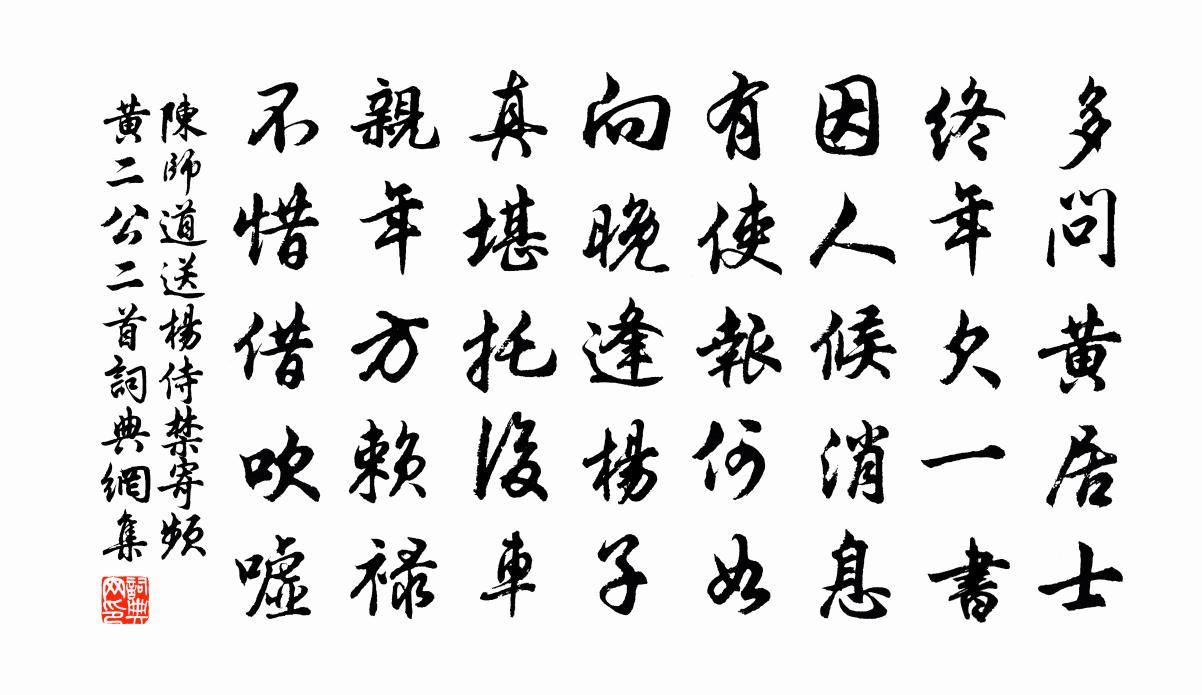 多問黄居士
終年欠一書
因人候消息
有使報何如
向晚逢楊子
真堪托後車
親年方賴禄
不惜借吹噓
陳師道送楊侍禁寄頻
黄二公二首詞典網集
詞典網印